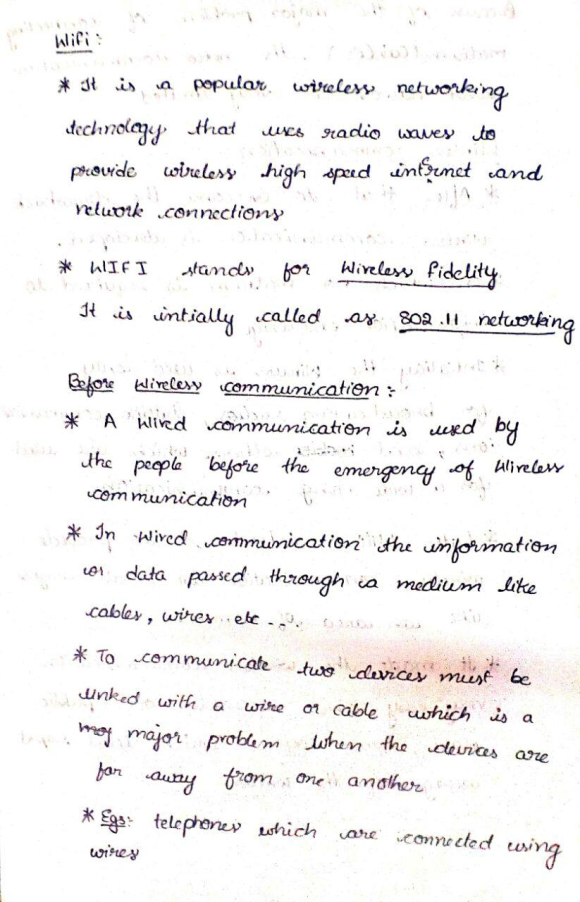 Wifi :
* It is a popular wireless networking
technology that uses radio waves to
provide wireless high speed internet and
network connections
* WIFI stands for Wireless Fidelity.
It is intially called as 802.11 networking
Before Wireless communication :
* A Wired communication is used by
the people before the emergency of Wireless
communication
* In Wired communication the information
or data passed through a medium like
cables, wires etc ...
* To communicate two devices must be
linked with a wire or cable which is a
major problem when the devices are
far away from one another.
* Egs: telephones which are connected using
wires